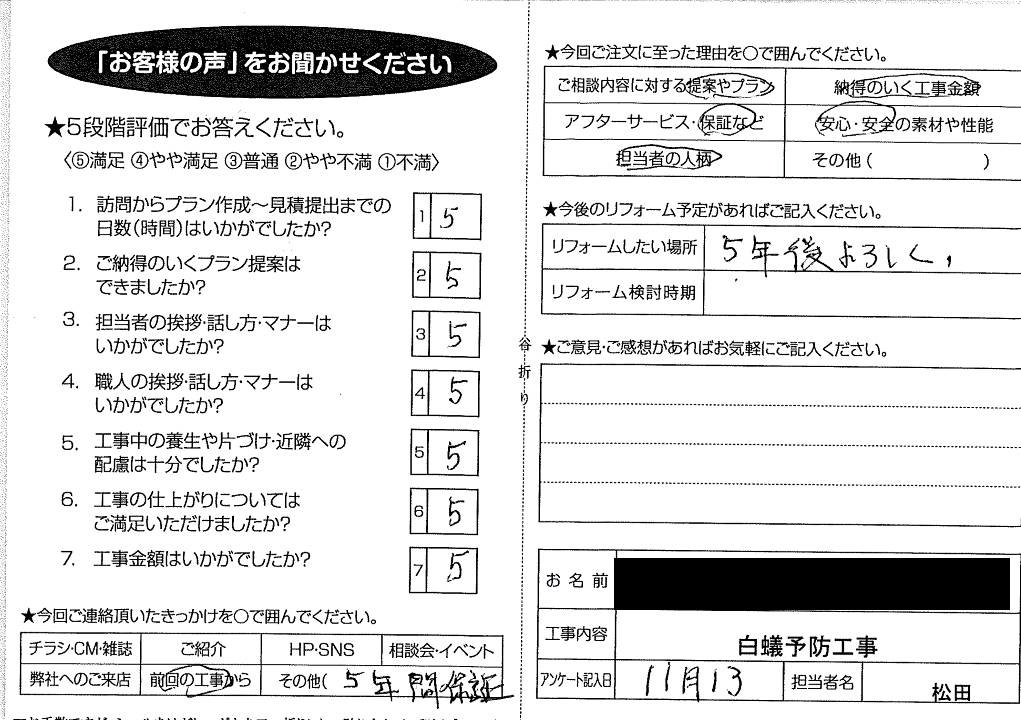 「お客様の声」をお聞かせください
★5段階評価でお答えください。
〈⑤満足 ④やや満足 ③普通 ②やや不満 ①不満〉
1. 訪問からプラン作成～見積提出までの
日数(時間)はいかがでしたか?
1 5
2. ご納得のいくプラン提案は
できましたか?
2 5
3. 担当者の挨拶・話し方・マナーは
いかがでしたか?
3 5
4. 職人の挨拶・話し方・マナーは
いかがでしたか?
4 5
5. 工事中の養生や片づけ・近隣への
配慮は十分でしたか?
5 5
6. 工事の仕上がりについては
ご満足いただけましたか?
6 5
7. 工事金額はいかがでしたか?
7 5
★今回ご連絡頂いたきっかけを○で囲んでください。
チラシ・CM・雑誌 ご紹介 HP・SNS 相談会・イベント
弊社へのご来店 前回の工事から その他( 5年間保証
谷折り
★今回ご注文に至った理由を○で囲んでください。
ご相談内容に対する提案やプラン 納得のいく工事金額
アフターサービス・保証など 安心・安全の素材や性能
担当者の人柄 その他( )
★今後のリフォーム予定があればご記入ください。
リフォームしたい場所 5年後よろしく,
リフォーム検討時期
★ご意見・ご感想があればお気軽にご記入ください。
お名前
工事内容 白蟻予防工事
アンケート記入日 11月13 担当者名 松田